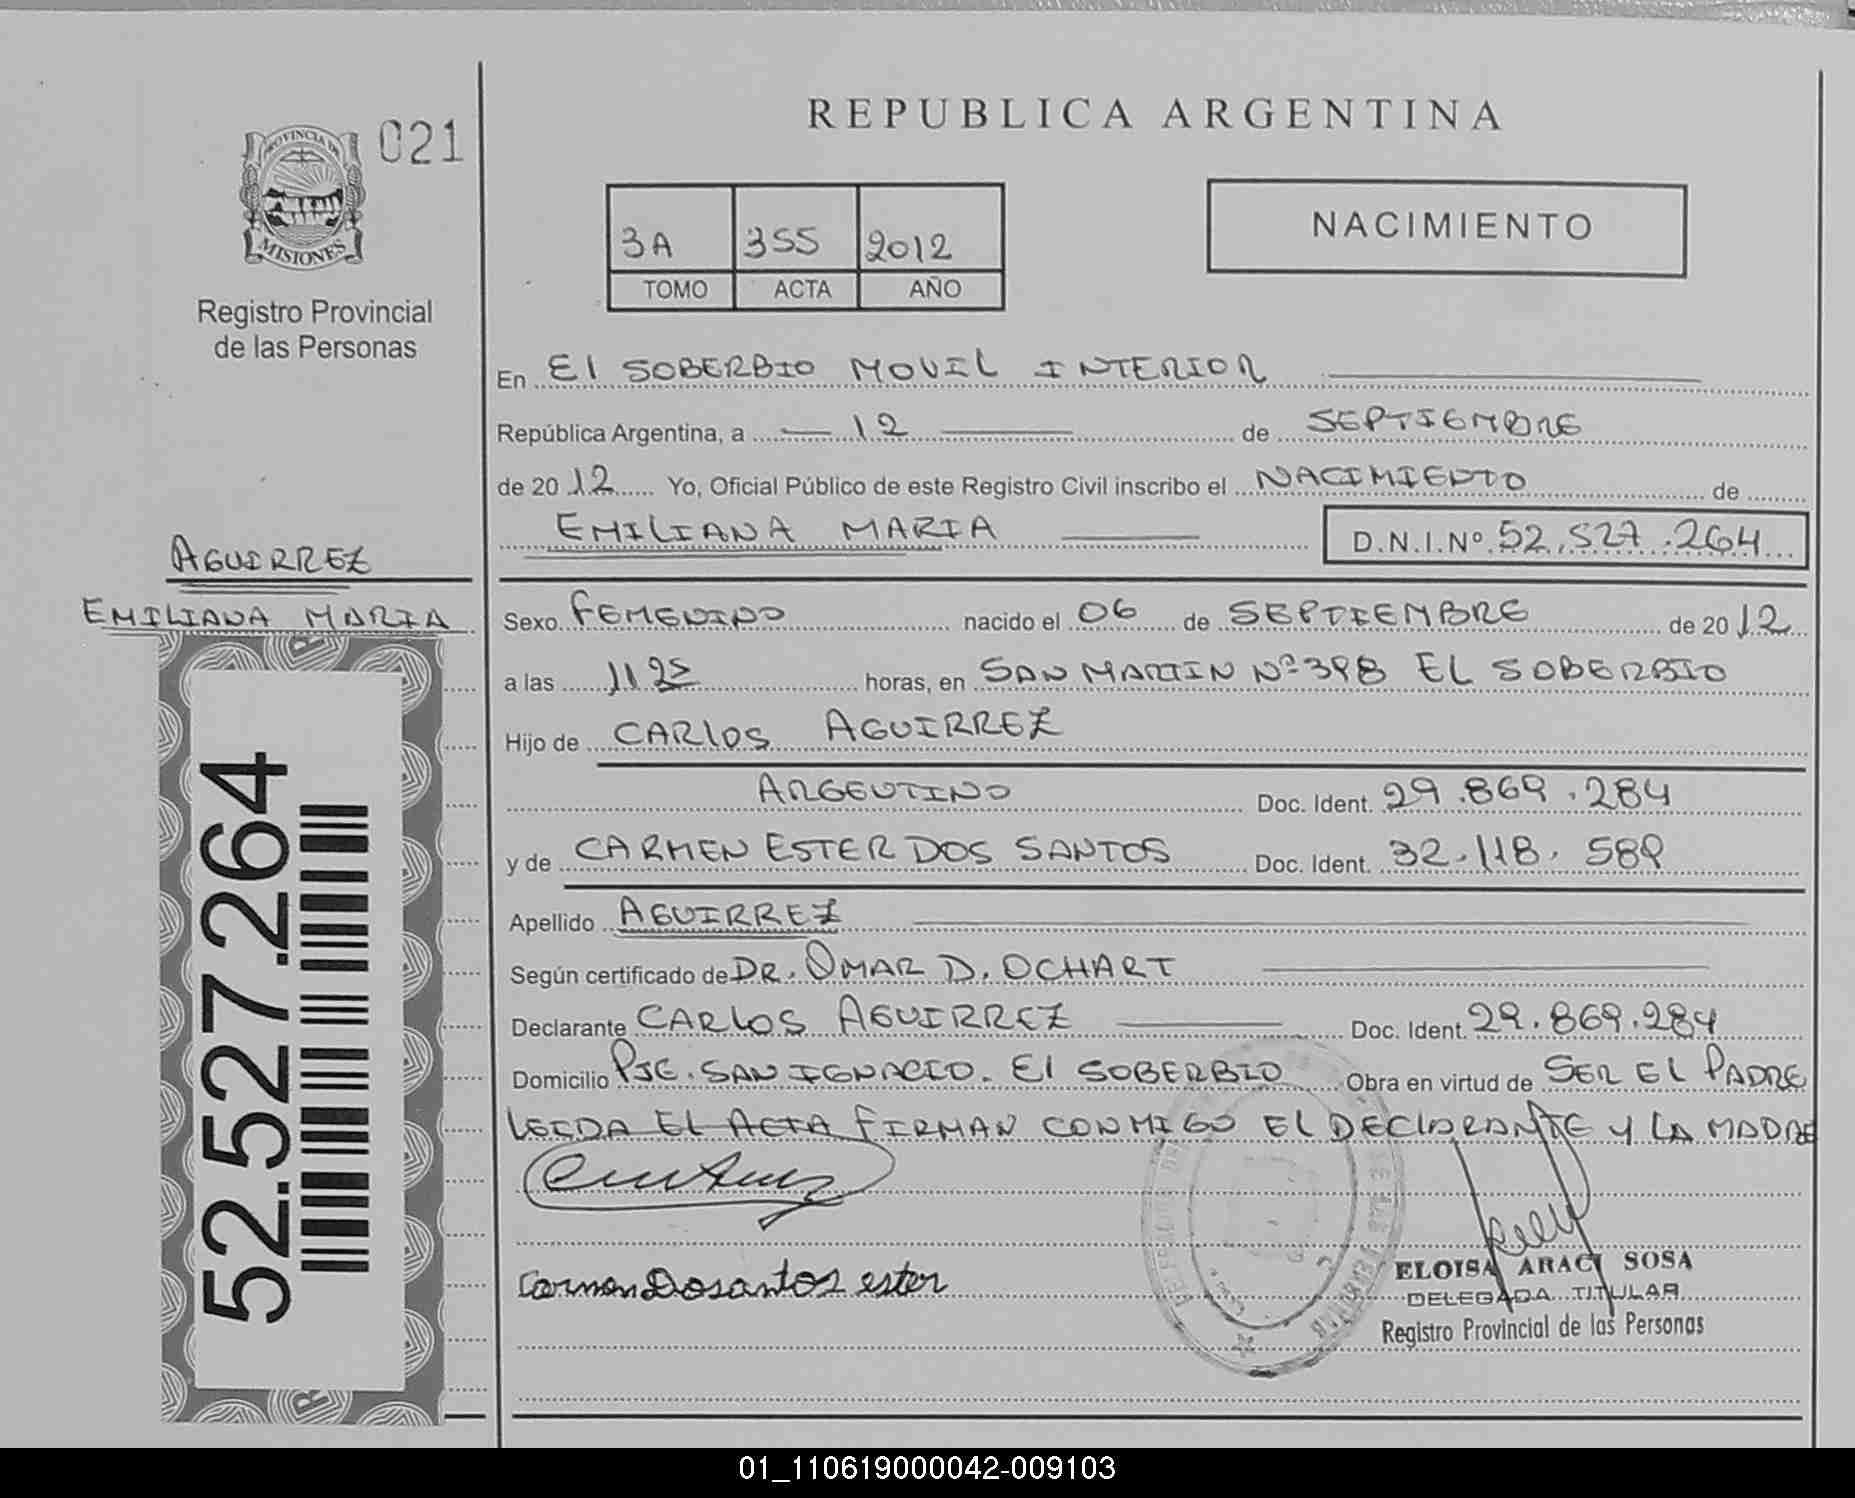 REPUBLICA ARGENTINA
021
PROVINCIA DE
MISIONES
Registro Provincial
de las Personas
3A 355 2012
TOMO ACTA AÑO
NACIMIENTO
En El SOBERBIO MOVIL INTERIOR
República Argentina, a 12 de SEPTIEMBRE
de 2012 Yo, Oficial Público de este Registro Civil inscribo el NACIMIENTO de
EMILIANA MARIA D.N.I.Nº 52.527.264
AGUIRREZ
EMILIANA MARIA
Sexo FEMENINO nacido el 06 de SEPTIEMBRE de 2012
a las 11 25 horas, en SAN MARTIN Nº 398 EL SOBERBIO
Hijo de CARLOS AGUIRREZ
ARGENTINO Doc. Ident. 29.869.284
y de CARMEN ESTER DOS SANTOS Doc. Ident. 32.118.589
Apellido AGUIRREZ
Según certificado de DR. OMAR D. OCHART
Declarante CARLOS AGUIRREZ Doc. Ident. 29.869.284
Domicilio PJE. SAN IGNACIO. El SOBERBIO Obra en virtud de SER EL PADRE
LEIDA EL ACTA FIRMAN CONMIGO El DECLARANTE Y LA MADRE
Carmen Dosantos ester
ELOISA ARACI SOSA
DELEGADA TITULAR
Registro Provincial de las Personas
52.527.264
01_110619000042-009103